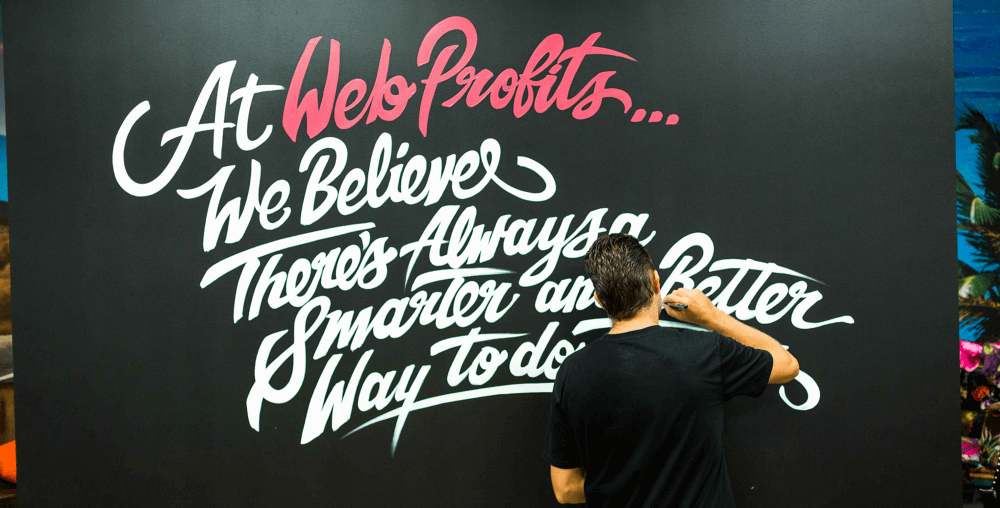 At Web Profits...
We Believe
There's Always a
Smarter and Better
Way to do